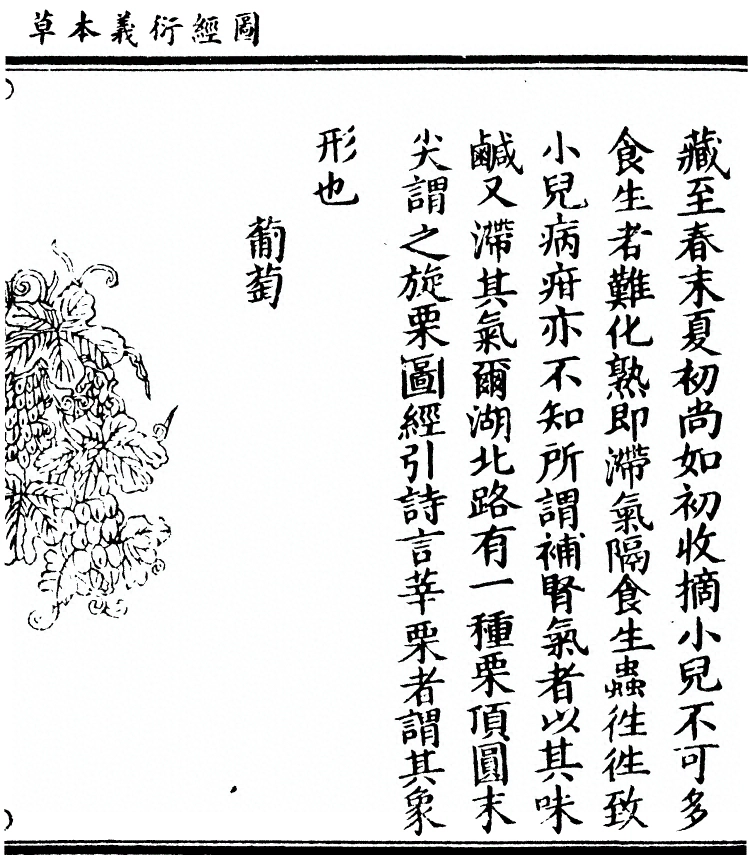 圖經衍義本草
藏至春末夏初尚如初收摘小兒不可多
食生者難化熟即滯氣隔食生蟲徃徃致
小兒病疳亦不知所謂補腎氣者以其味
鹹又滯其氣爾湖北路有一種栗頂圓末
尖謂之旋栗圖經引詩言莘栗者謂其象
形也
葡萄